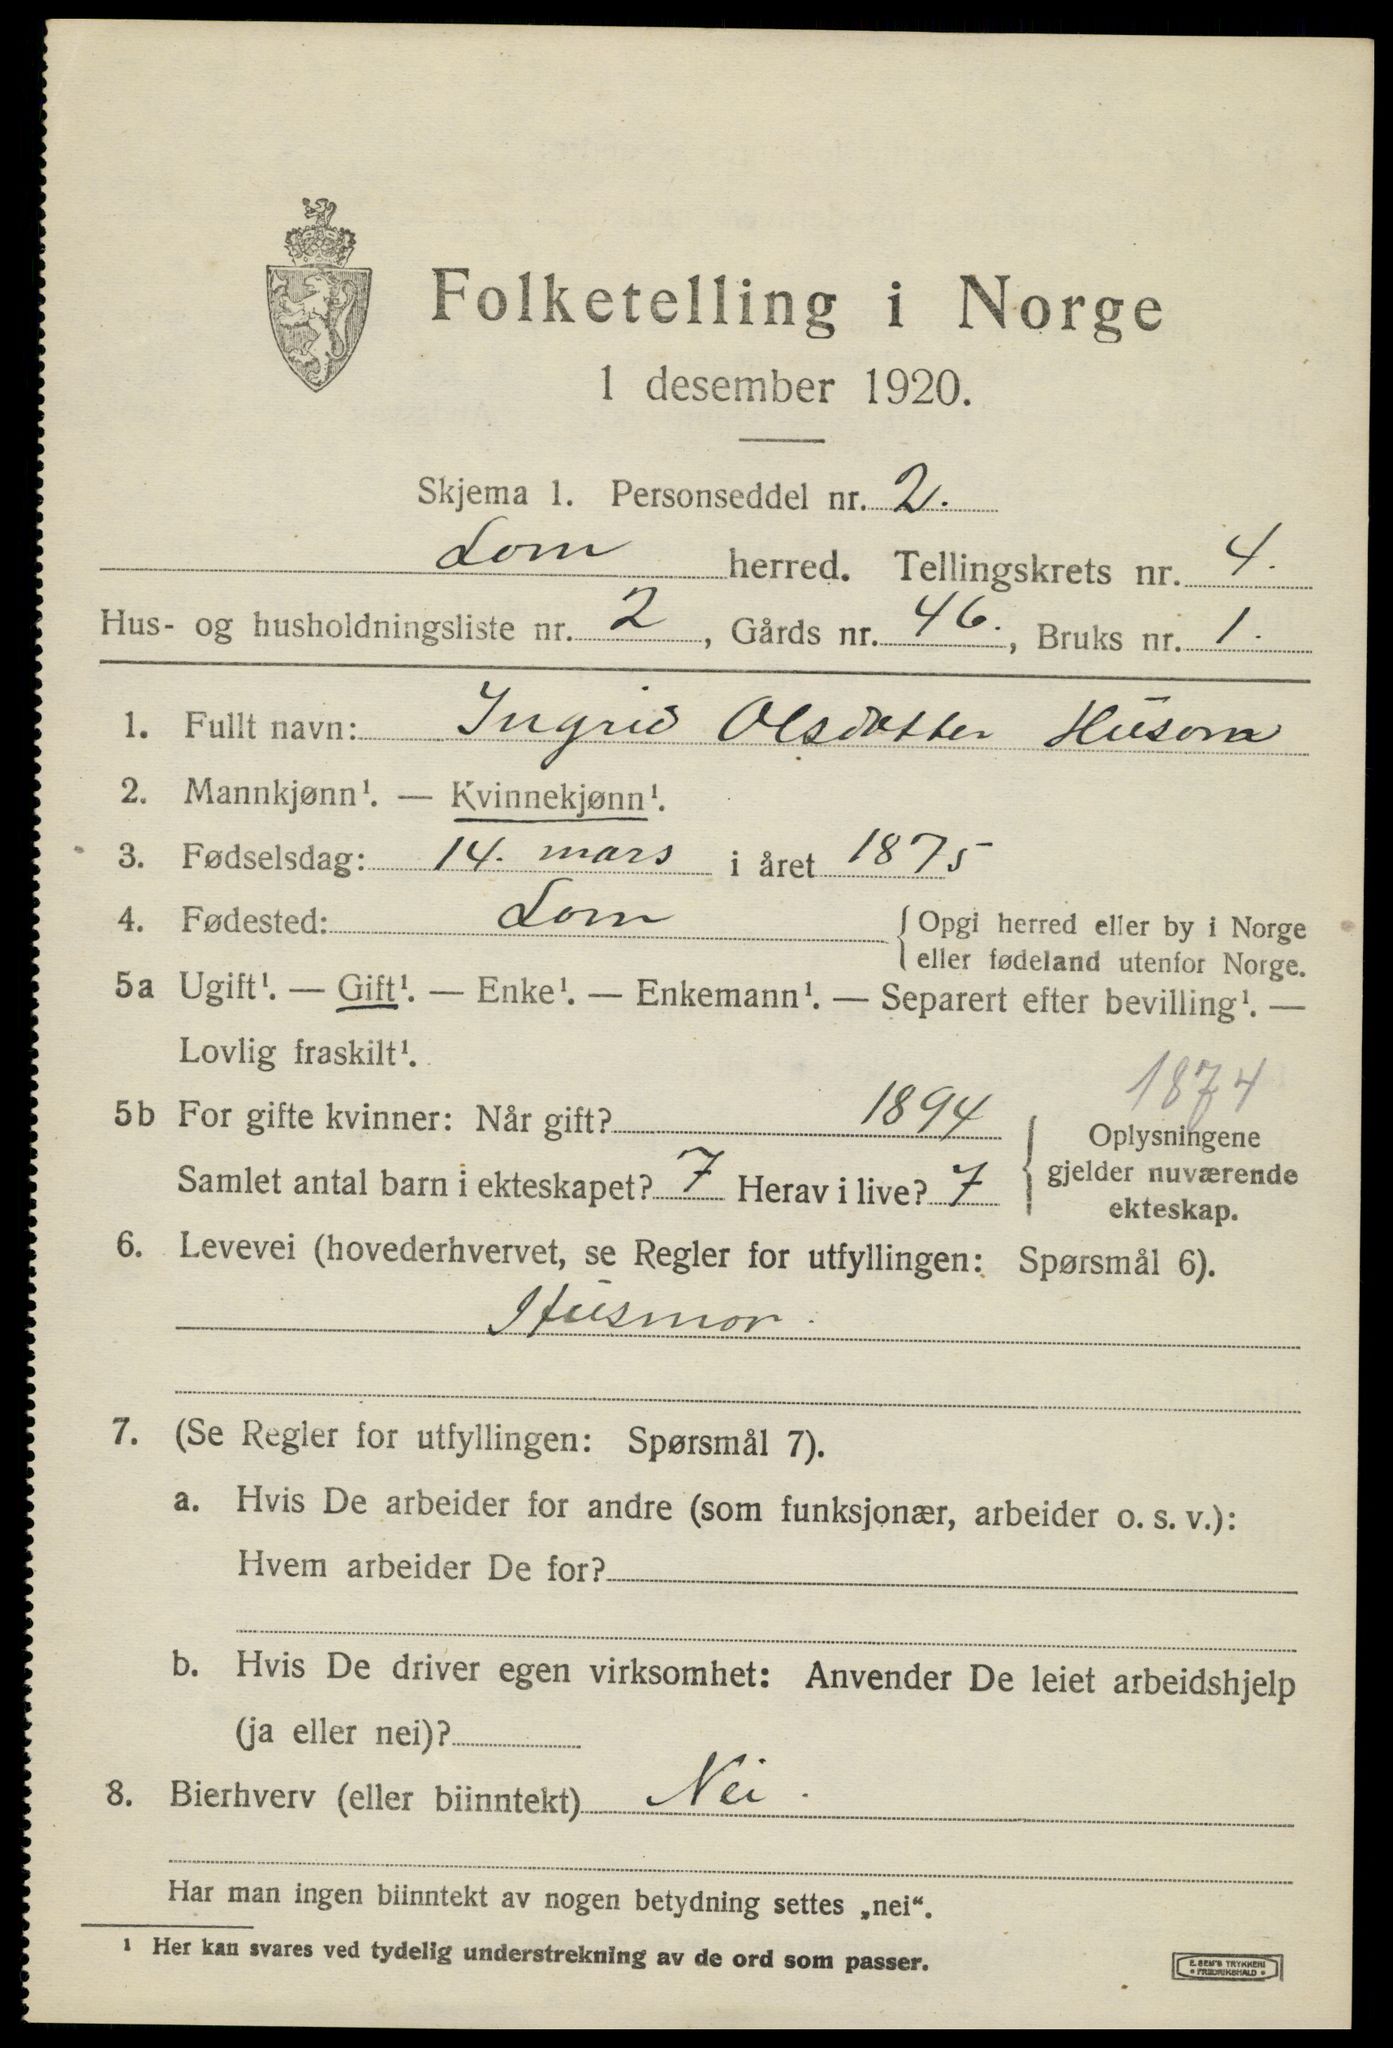 Folketelling i Norge
1 desember 1920.
Skjema 1. Personseddel nr. 2.
Lom herred. Tellingskrets nr. 4.
Hus- og husholdningsliste nr. 2, Gårds nr. 46., Bruks nr. 1.
1. Fullt navn: Ingrid Olsdatter Husom
2. Mannkjønn¹. — Kvinnekjønn¹.
3. Fødselsdag: 14. mars i året 1875
4. Fødested: Lom { Opgi herred eller by i Norge
eller fødeland utenfor Norge.
5a Ugift¹. — Gift¹. — Enke¹. — Enkemann¹. — Separert efter bevilling¹. —
Lovlig fraskilt¹.
1874
5b For gifte kvinner: Når gift? 1894
Samlet antal barn i ekteskapet? 7 Herav i live? 7
{ Oplysningene
gjelder nuværende
ekteskap.
6. Levevei (hovederhvervet, se Regler for utfyllingen: Spørsmål 6).
Husmor.
7. (Se Regler for utfyllingen: Spørsmål 7).
a. Hvis De arbeider for andre (som funksjonær, arbeider o. s. v.):
Hvem arbeider De for?
b. Hvis De driver egen virksomhet: Anvender De leiet arbeidshjelp
(ja eller nei)?
8. Bierhverv (eller biinntekt) Nei.
Har man ingen biinntekt av nogen betydning settes „nei“.
¹ Her kan svares ved tydelig understrekning av de ord som passer.
E. SEM'S TRYKKERI
• FREDRIKSHALD •